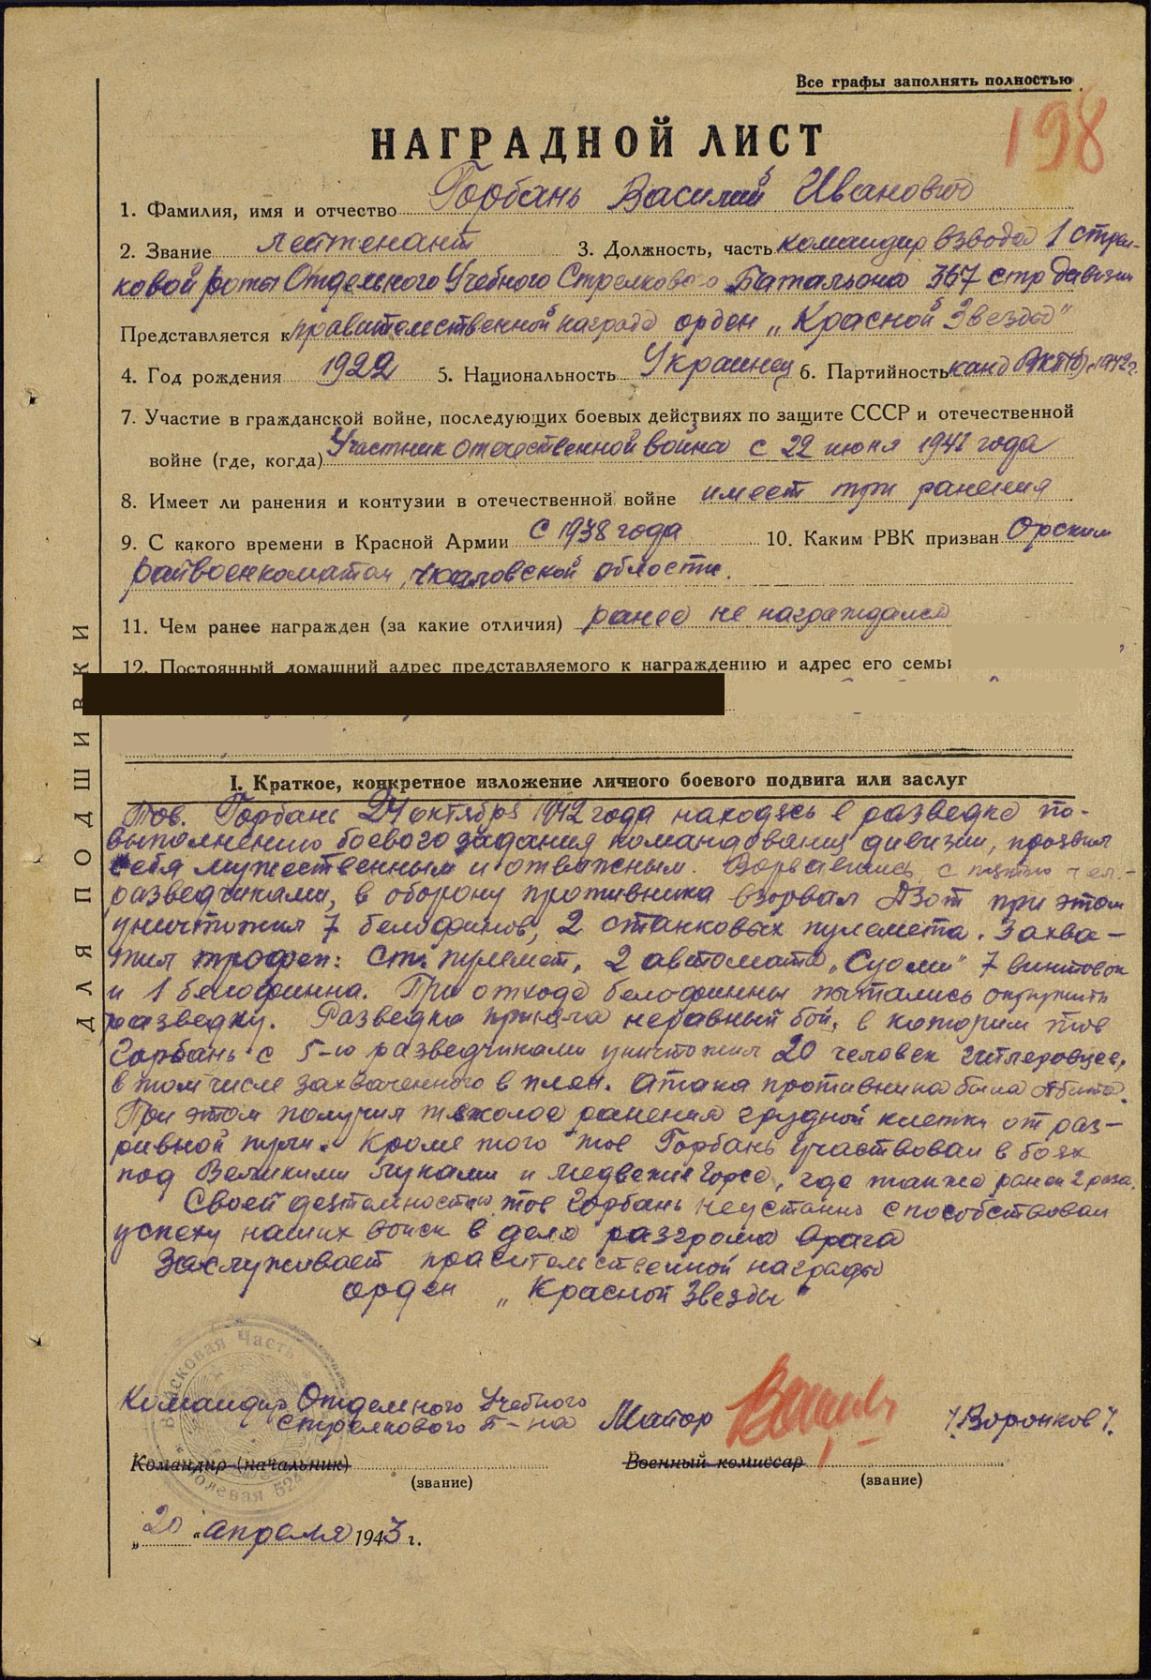 Все графы заполнять полностью
198
НАГРАДНОЙ ЛИСТ
1. Фамилия, имя и отчество Горбань Василий Иванович
2. Звание лейтенант 3. Должность, часть командир взвода 1 стрел-
ковой роты Отдельного Учебного Стрелкового Батальона 367 стр дивизии
Представляется к правительственной награде орден „Красной Звезды"
4. Год рождения 1922 5. Национальность Украинец 6. Партийность канд ВКП(б) с 1942 г.
7. Участие в гражданской войне, последующих боевых действиях по защите СССР и отечественной
войне (где, когда) Участник отечественной войны с 22 июня 1941 года
8. Имеет ли ранения и контузии в отечественной войне имеет три ранения
9. С какого времени в Красной Армии с 1938 года 10. Каким РВК призван Орским
райвоенкоматом, Чкаловской области.
11. Чем ранее награжден (за какие отличия) ранее не награждался
12. Постоянный домашний адрес представляемого к награждению и адрес его семьи
ДЛЯ ПОДШИВКИ
I. Краткое, конкретное изложение личного боевого подвига или заслуг
Тов. Горбань 24 октября 1942 года находясь в разведке по-
выполнению боевого задания командования дивизии, проявил
себя мужественным и отважным. Ворвавшись, с пятью чел.-
разведчиками, в оборону противника взорвал ДЗОТ при этом
уничтожил 7 белофинов, 2 станковых пулемета. Захва-
тил трофеи: Ст. пулемет, 2 автомата „Суоми" 7 винтовок
и 1 белофинна. При отходе белофинны пытались окружить
разведку. Разведка приняла неравный бой, в котором тов
Горбань с 5-ю разведчиками уничтожил 20 человек гитлеровцев,
в том числе захваченного в плен. Атака противника была отбита.
При этом получил тяжолое ранение грудной клетки от раз-
рывной пули. Кроме того тов Горбань участвовал в боях
под Великими Луками и Медвежегорск, где также ранен 2 раза.
Своей деятельностью тов Горбань неустанно способствовал
успеху наших войск в деле разгрома врага
Заслуживает правительственной награды
орден „Красной Звезды"
Войсковая часть
Полевая 524
Командир Отдельного Учебного
Стрелкового Б-на Майор /Воронков/.
Командир (начальник) Военный комиссар
(звание) (звание)
„20" апреля 1943 г.